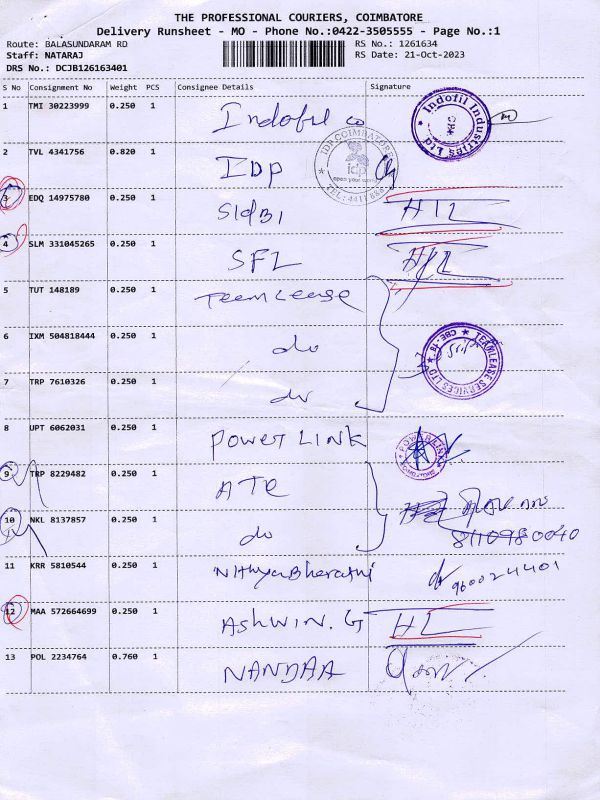 THE PROFESSIONAL COURIERS, COIMBATORE
Delivery Runsheet - MO - Phone No.:0422-3505555 - Page No.:1
Route: BALASUNDARAM RD
RS No.: 1261634
Staff: NATARAJ
RS Date: 21-Oct-2023
DRS No.: DCJB126163401
S No Consignment No Weight PCS Consignee Details Signature
1 TMI 30223999 0.250 1 Indofil co
Indofil Industries Ltd
2 TVL 4341756 0.820 1 IDP
IDP COIMBATORE
idp
3 EDQ 14975780 0.250 1 SIdBI
4 SLM 331045265 0.250 1 SFL
5 TUT 148189 0.250 1 TeemLeese
6 IXM 504818444 0.250 1 do
TEAMLEASE SERVICES LTD ★ CBE-18 ★
7 TRP 7610326 0.250 1 do
8 UPT 6062031 0.250 1 POWER LINK
9 TRP 8229482 0.250 1 ATR
10 NKL 8137857 0.250 1 do
8110980040
11 KRR 5810544 0.250 1 NithyaBharathi 960024401
12 MAA 572664699 0.250 1 AshWIN. G
13 POL 2234764 0.760 1 NANDAA